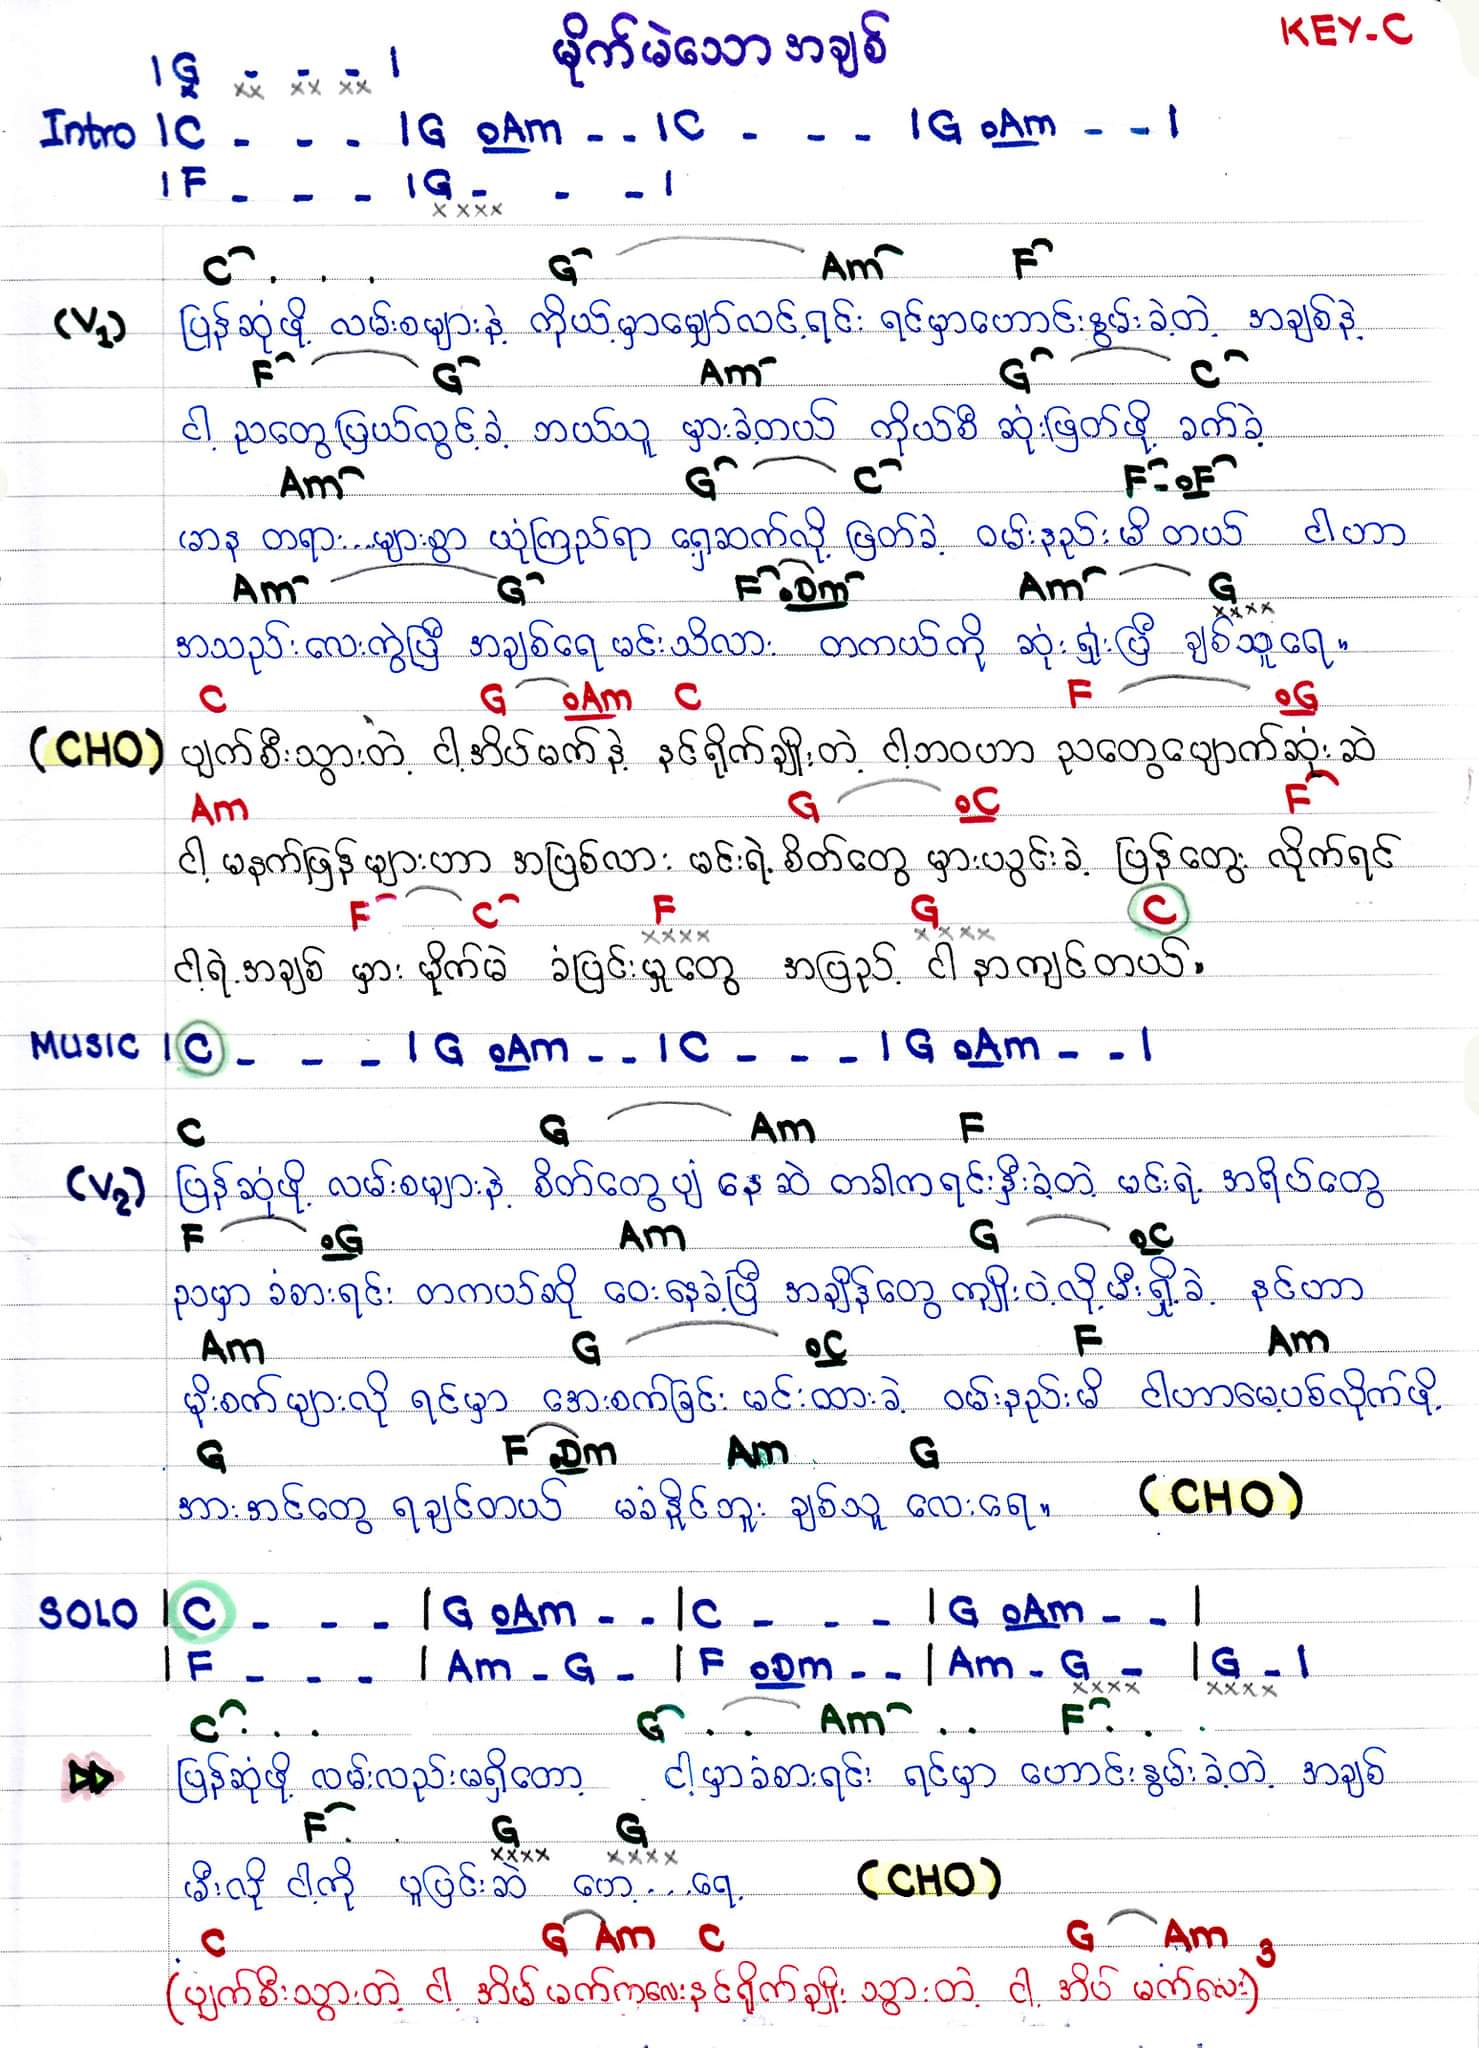 မိုက်မဲသော အချစ်
KEY-C
|G - - - |
xx xx xx
Intro |C - - - |G oAm - - |C - - - |G oAm - - |
|F - - - |G - - - |
xxxx
C . . . G Am F
(V1) ပြန်ဆုံဖို့ လမ်းစများနဲ့ ကိုယ့်မှာမျှော်လင့်ရင်း ရင်မှာဟောင်းနွမ်းခဲ့တဲ့ အချစ်နဲ့
F G Am G C
ငါ့ ညတွေပြယ်လွင့်ခဲ့ ဘယ်သူ မှားခဲ့တယ် ကိုယ်စီ ဆုံးဖြတ်ဖို့ ခက်ခဲ့
Am G C F - oF
သောန တရား...များစွာ ယုံကြည်ရာ ရှေ့ဆက်လို့ ဖြတ်ခဲ့ ဝမ်းနည်းမိတယ် ငါဟာ
Am G F oDm Am G
xxxx
အသည်းလေးကွဲပြီ အချစ်ရေ မင်းသိလား တကယ်ကို ဆုံးရှုံးပြီ ချစ်သူရေ။
C G oAm C F oG
(CHO) ပျက်စီးသွားတဲ့ ငါ့အိပ်မက်နဲ့ နင်ရိုက်ချိုးတဲ့ ငါ့ဘဝဟာ ညတွေပျောက်ဆုံးဆဲ
Am G oC F
ငါ့ မနက်ဖြန်များဟာ အပြစ်လား မင်းရဲ့ စိတ်တွေ မှားယွင်းခဲ့ ပြန်တွေး လိုက်ရင်
F C F G C
xxxx xxxx
ငါ့ရဲ့အချစ် မှား မိုက်မဲ ခံပြင်းမှုတွေ အပြည့် ငါ နာကျင်တယ်။
MUSIC |C - - - |G oAm - - |C - - - |G oAm - - |
C G Am F
(V2) ပြန်ဆုံဖို့ လမ်းစများနဲ့ စိတ်တွေပျံ့နေဆဲ တခါက ရင်းနှီးခဲ့တဲ့ မင်းရဲ့ အရိပ်တွေ
F oG Am G oC
ညမှာ ခံစားရင်း တကယ်ဆို ဝေးနေခဲ့ပြီ အချိန်တွေ ကျိုးပဲ့လို့မီးရှို့ခဲ့ နင်ဟာ
Am G oC F Am
မိုးစက်များလို ရင်မှာ အေးစက်ခြင်း မင်းထားခဲ့ ဝမ်းနည်းမိ ငါဟာမေ့ပစ်လိုက်ဖို့
G F oDm Am G
အားအင်တွေ ရချင်တယ် မခံနိုင်ဘူး ချစ်သူ လေးရေ။ (CHO)
SOLO |C - - - |G oAm - - |C - - - |G oAm - - |
|F - - - |Am - G - |F oDm - - |Am - G - |G - |
xxxx xxxx
C . . . G . . Am . . F . . .
ပြန်ဆုံဖို့ လမ်းလည်းမရှိတော့ ငါ့မှာခံစားရင်း ရင်မှာ ဟောင်းနွမ်းခဲ့တဲ့ အချစ်
F . . G G
xxxx xxxx
မီးလို ငါ့ကို ပူပြင်းဆဲ ဟေ့....ရေ့ (CHO)
C G Am C G Am
(ပျက်စီးသွားတဲ့ ငါ့ အိပ်မက်ကလေးနင်ရိုက်ချိုး သွားတဲ့ ငါ့ အိပ် မက်လေး)3